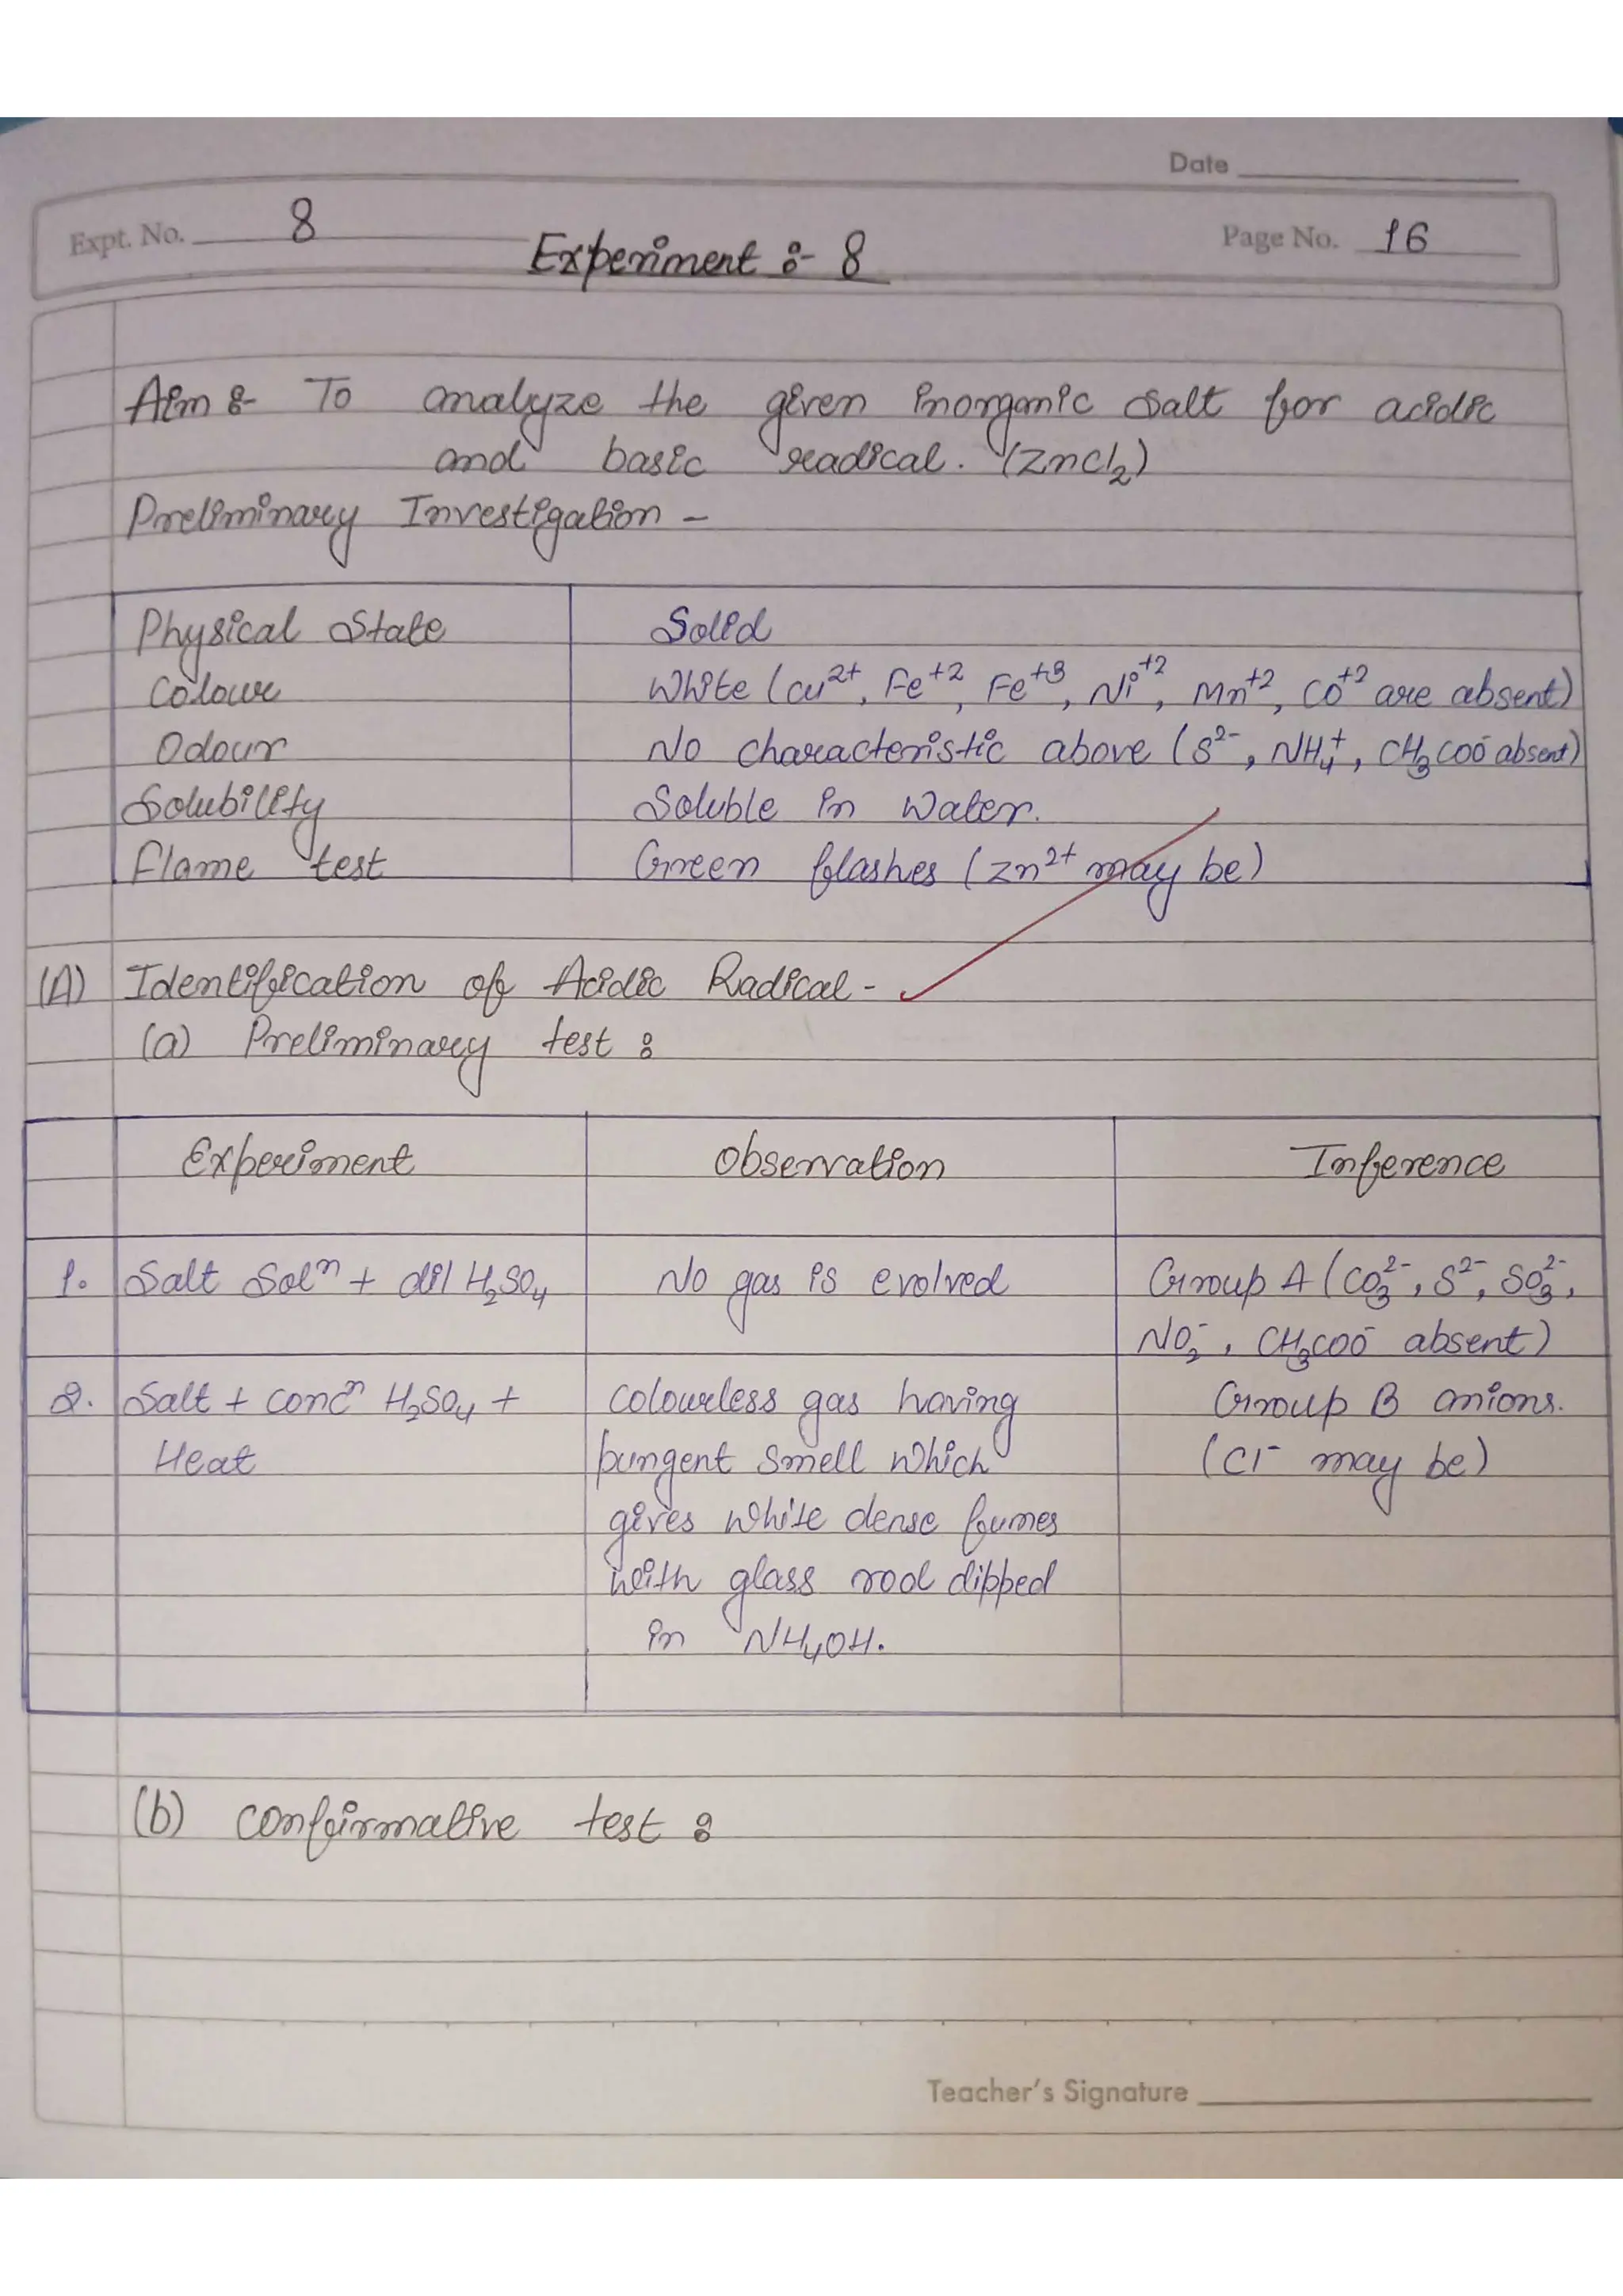 Date
Expt. No. 8
Experiment :- 8
Page No. 16
Aim :- To analyze the given inorganic salt for acidic
and basic radical. (ZnCl₂)
Preliminary Investigation -
Physical State Solid
Colour White (Cu²⁺, Fe⁺², Fe⁺³, Ni⁺², Mn⁺², Co⁺² are absent)
Odour No characteristic above (S²⁻, NH₄⁺, CH₃COO⁻ absent)
Solubility Soluble in water.
Flame test Green flashes (Zn²⁺ may be)
(A) Identification of Acidic Radical -
(a) Preliminary test :
Experiment Observation Inference
1. Salt Solⁿ + dil H₂SO₄ No gas is evolved Group A (CO₃²⁻, S²⁻, SO₃²⁻,
NO₂⁻, CH₃COO⁻ absent)
2. Salt + concⁿ H₂SO₄ + colourless gas having Group B anions.
Heat pungent smell which (Cl⁻ may be)
gives white dense fumes
with glass rod dipped
in NH₄OH.
(b) confirmative test :
Teacher's Signature